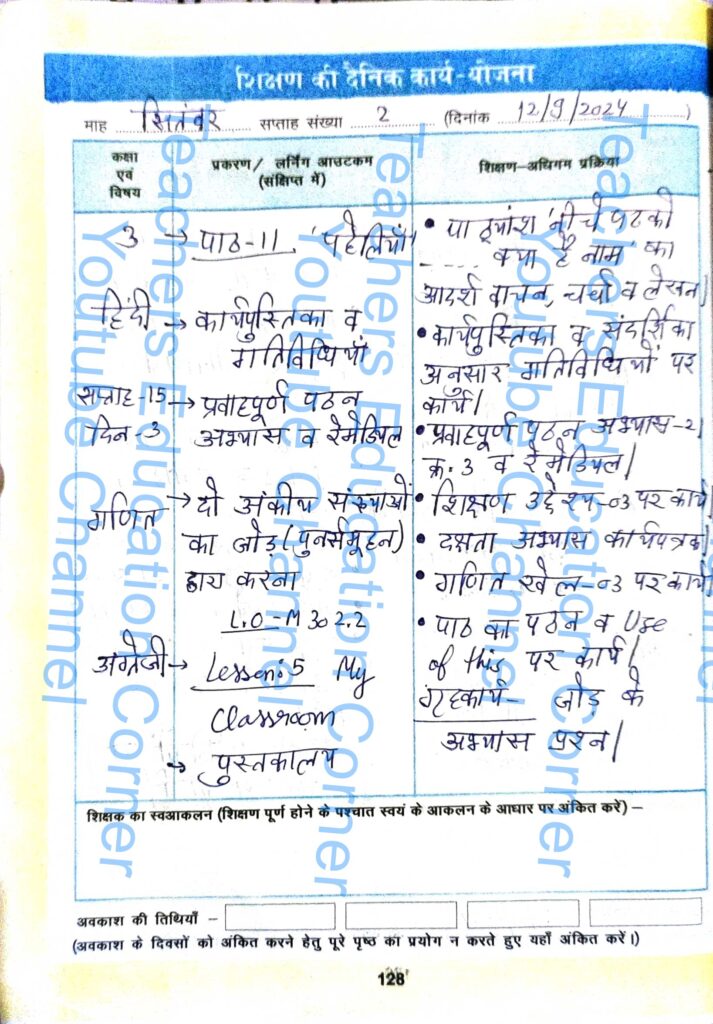 शिक्षण की दैनिक कार्य-योजना
माह सितंबर सप्ताह संख्या 2 (दिनांक 12/9/2024)
कक्षा एवं विषय
प्रकरण/ लर्निंग आउटकम (संक्षिप्त में)
शिक्षण-अधिगम प्रक्रिया
3 → पाठ-11. 'पहेलियाँ'
हिंदी → कार्यपुस्तिका व
गतिविधियाँ
सप्ताह-15 → प्रवाहपूर्ण पठन
दिन-3 अभ्यास व रेमेडियल
गणित → दो अंकीय संख्याओं
का जोड़ (पुनर्समूहन)
द्वारा करना
L.O-M 302.2
अंग्रेजी → Lesson:5 My
Classroom
→ पुस्तकालय
• पाठ्यांश 'नीचे पटको
..... क्या है नाम' का
आदर्श वाचन, चर्चा व लेखन|
• कार्यपुस्तिका व संदर्शिका
अनुसार गतिविधियों पर
कार्य|
• प्रवाहपूर्ण पठन अभ्यास-2
क्र. 3 व रेमेडियल|
• शिक्षण उद्देश्य-03 पर कार्य
• दक्षता अभ्यास कार्यपत्रक|
• गणित खेल-03 पर कार्य|
• पाठ का पठन व Use
of this पर कार्य|
गृहकार्य- जोड़ के
अभ्यास प्रश्न|
शिक्षक का स्वआकलन (शिक्षण पूर्ण होने के पश्चात स्वयं के आकलन के आधार पर अंकित करें) –
अवकाश की तिथियाँ –
(अवकाश के दिवसों को अंकित करने हेतु पूरे पृष्ठ का प्रयोग न करते हुए यहाँ अंकित करें।)
128
Teachers Education Corner
Youtube Channel
Teachers Education Corner
Youtube Channel
Teachers Education Corner
Youtube Channel